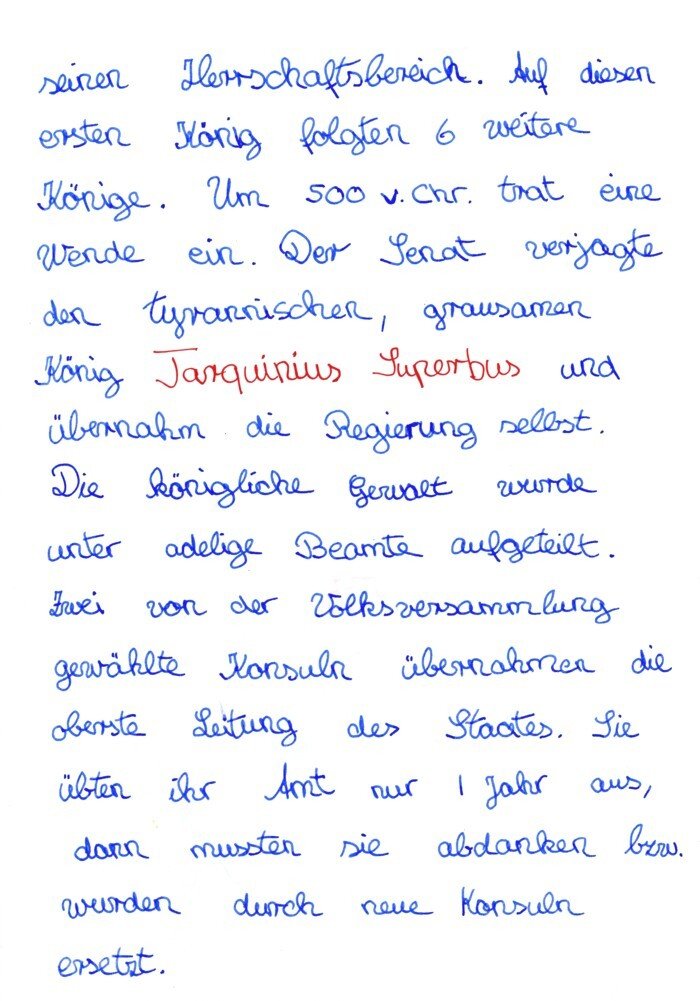 seinen Herrschaftsbereich. Auf diesen
ersten König folgten 6 weitere
Könige. Um 500 v. Chr. trat eine
Wende ein. Der Senat verjagte
den tyrannischen, grausamen
König Tarquinius Superbus und
übernahm die Regierung selbst.
Die königliche Gewalt wurde
unter adelige Beamte aufgeteilt.
Zwei von der Volksversammlung
gewählte Konsuln übernahmen die
oberste Leitung des Staates. Sie
übten ihr Amt nur 1 Jahr aus,
dann mussten sie abdanken bzw.
wurden durch neue Konsuln
ersetzt.